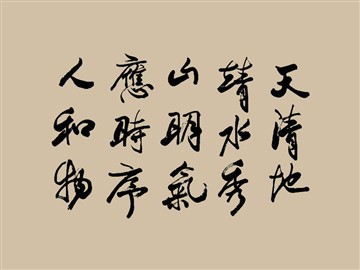 天清地
靖水秀
山明氣
應時序
人和物